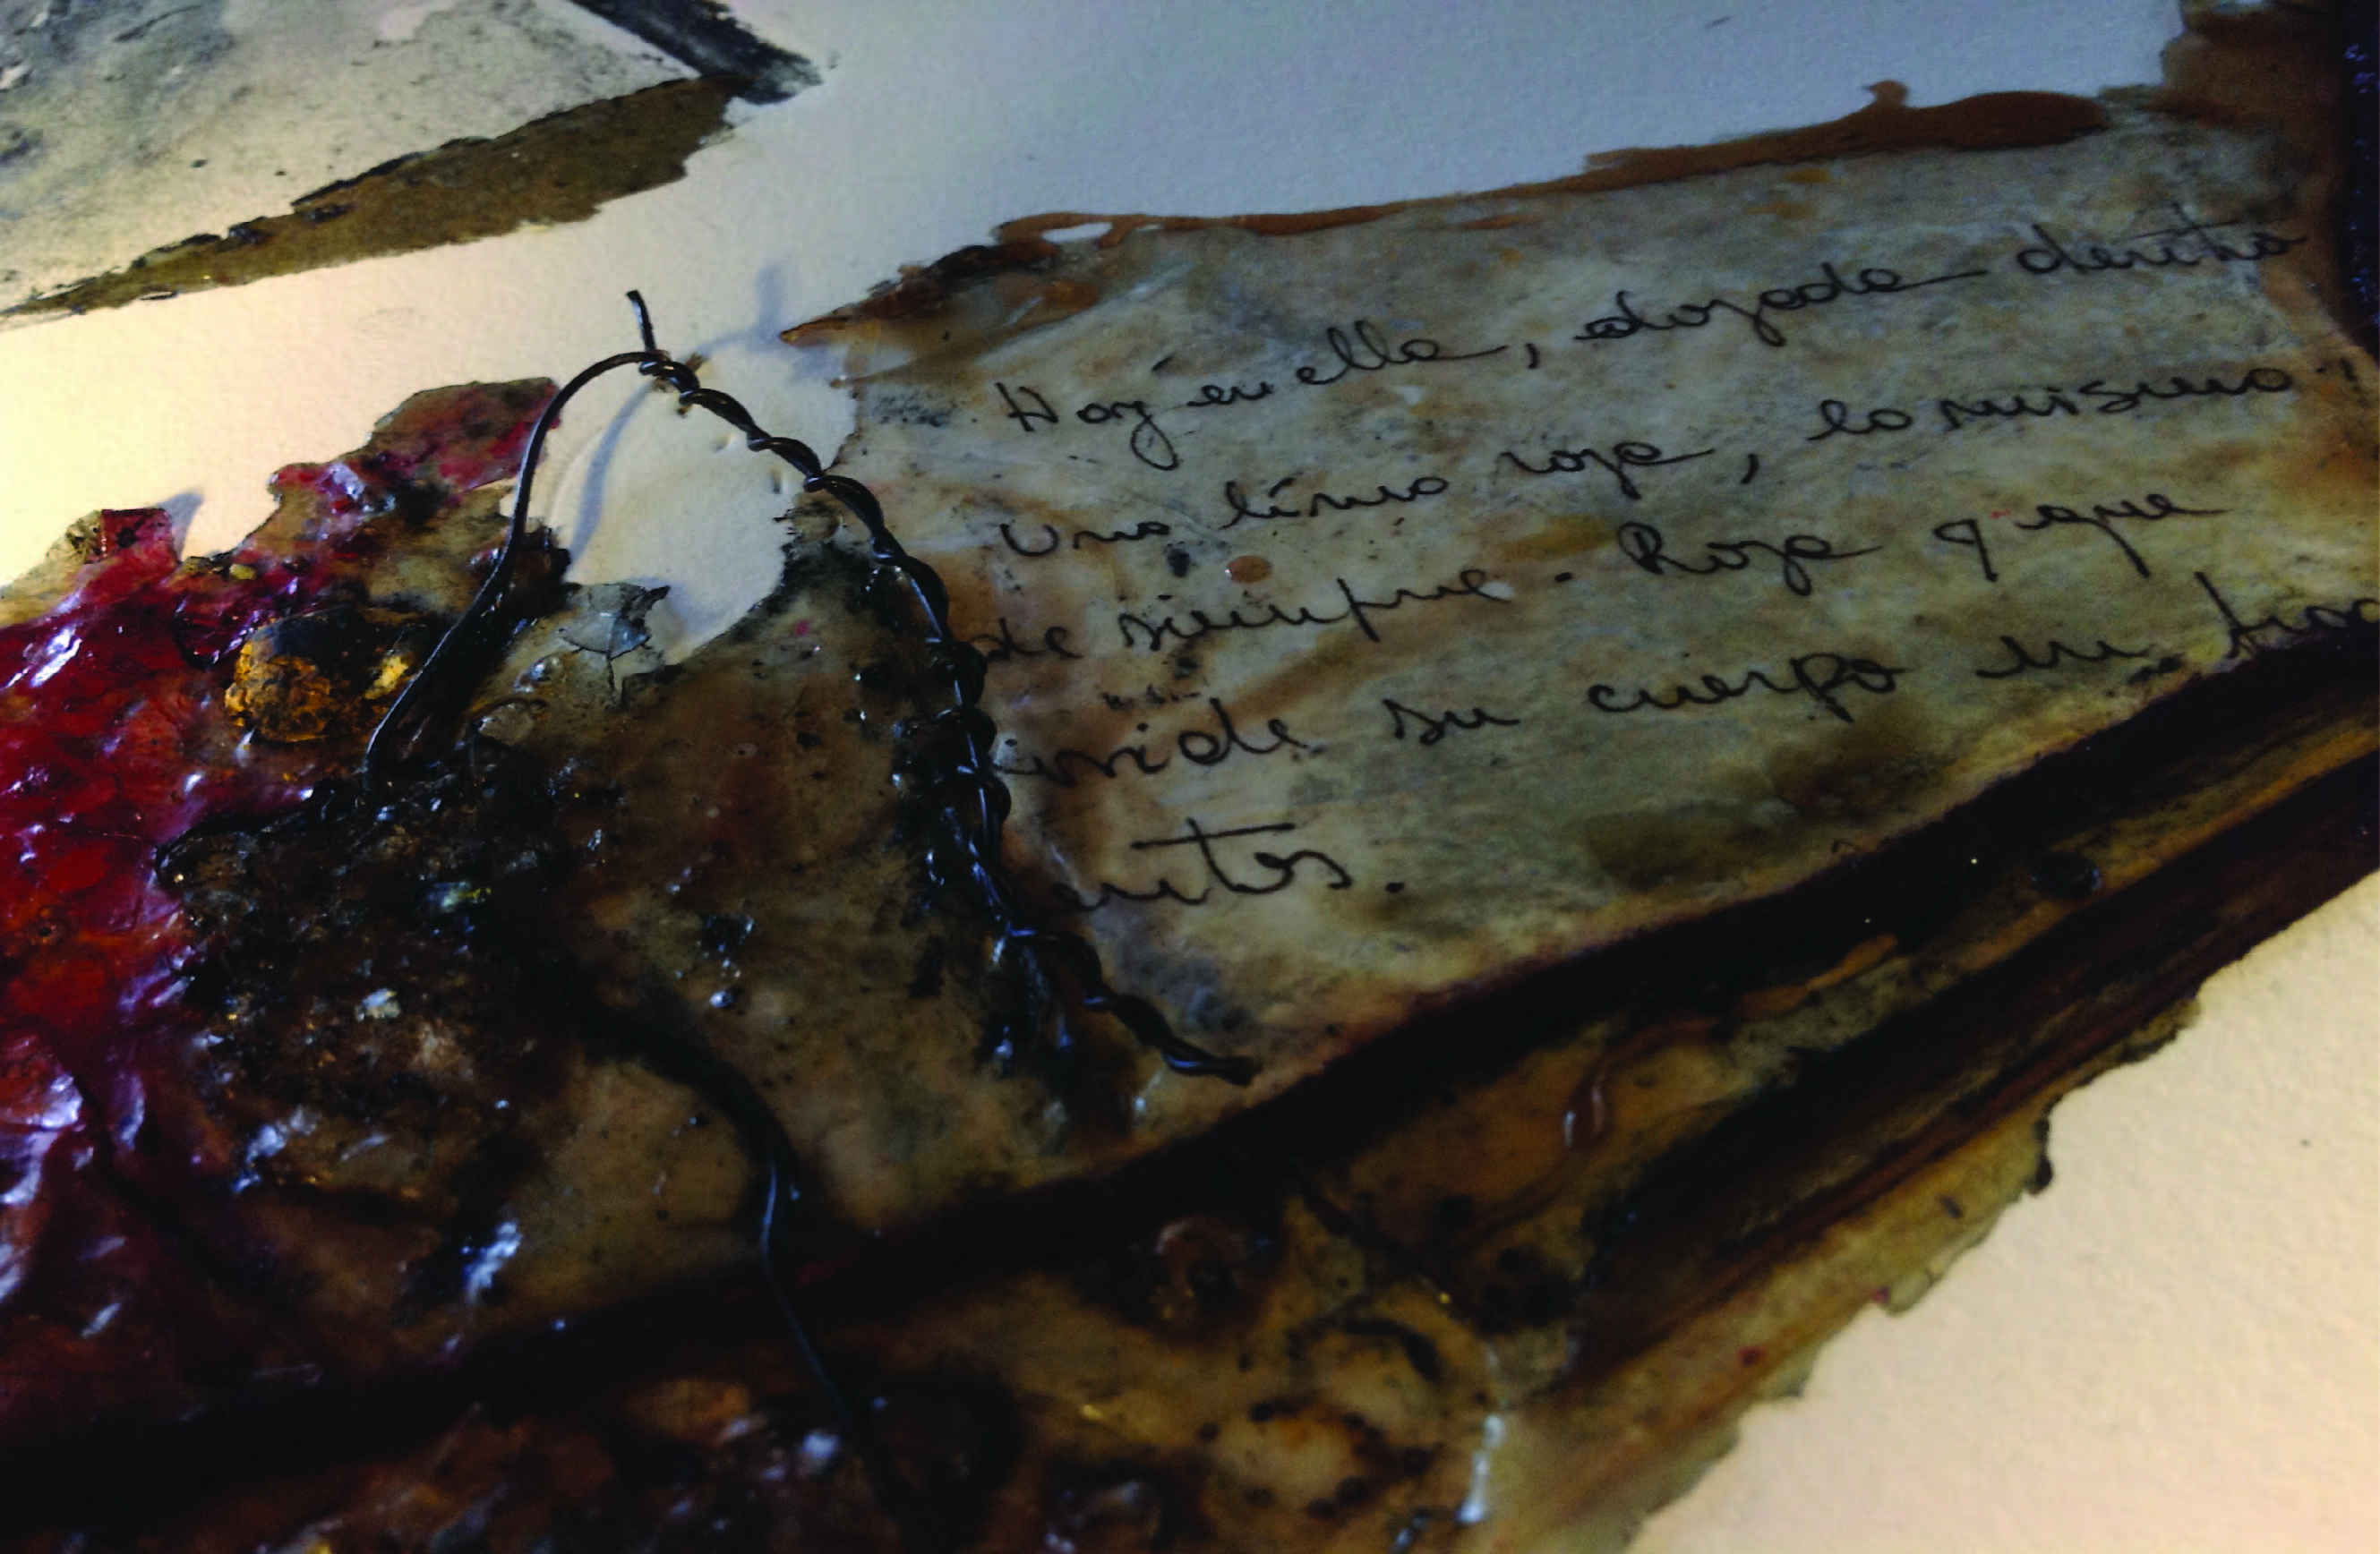 Hay en ella, alojada dentro
Una línea roja, la misma
de siempre. Roja y que
divide su cuerpo en